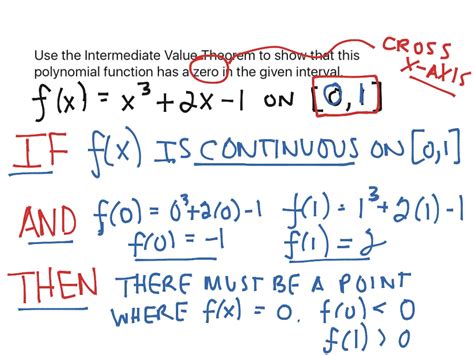 Use the Intermediate Value Theorem to show that this
polynomial function has a zero in the given interval.
CROSS
X-AXIS
f(x) = x³ + 2x - 1 ON [0,1]
IF f(x) IS CONTINUOUS ON [0,1]
AND f(0) = 0³+2(0)-1 f(1) = 1³+2(1)-1
f(0) = -1 f(1) = 2
THEN THERE MUST BE A POINT
WHERE f(x) = 0. f(0) < 0
f(1) > 0